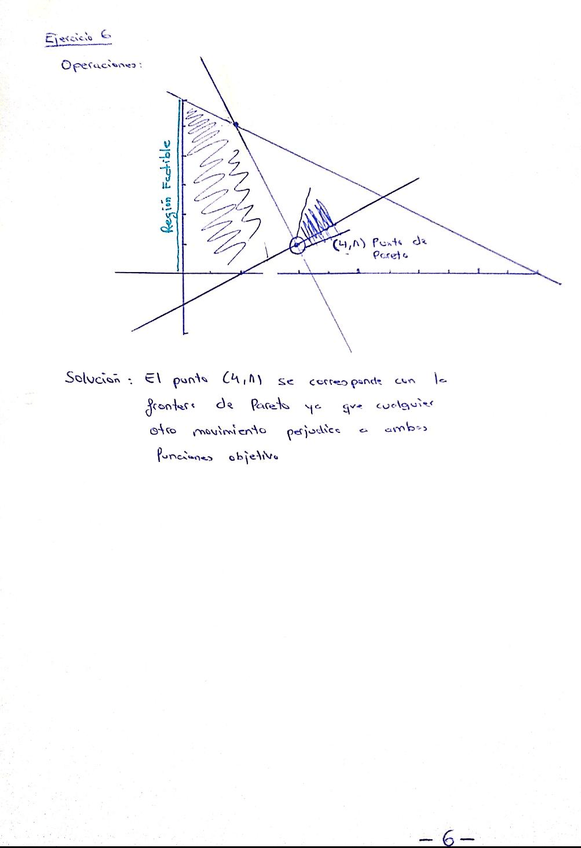 Ejercicio 6
Operaciones:
Región Factible
(4,1) Punto de
Pareto
Solución: El punto (4,1) se corresponde con la
frontera de Pareto ya que cualquier
otro movimiento perjudica a ambas
funciones objetivo
-6-